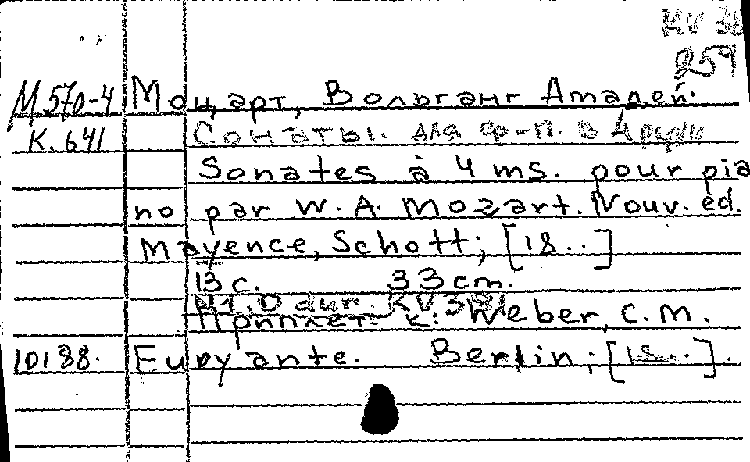 KV 38
259
М 570-4 Моцарт, Вольганг Амадей.
К. 641 Сонаты. для ф-п. в 4 руки
Sonates à 4 ms. pour pia
no par W. A. Mozart. Nouv. éd.
Mayence, Schott; [18..]
13 с. 33 cm.
N1. D dur. KV 381
Приплет. к: Weber, C. M.
10188. Euryante. Berlin; [18..].